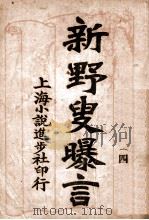 新野叟曝言
四
上海小說進步社印行